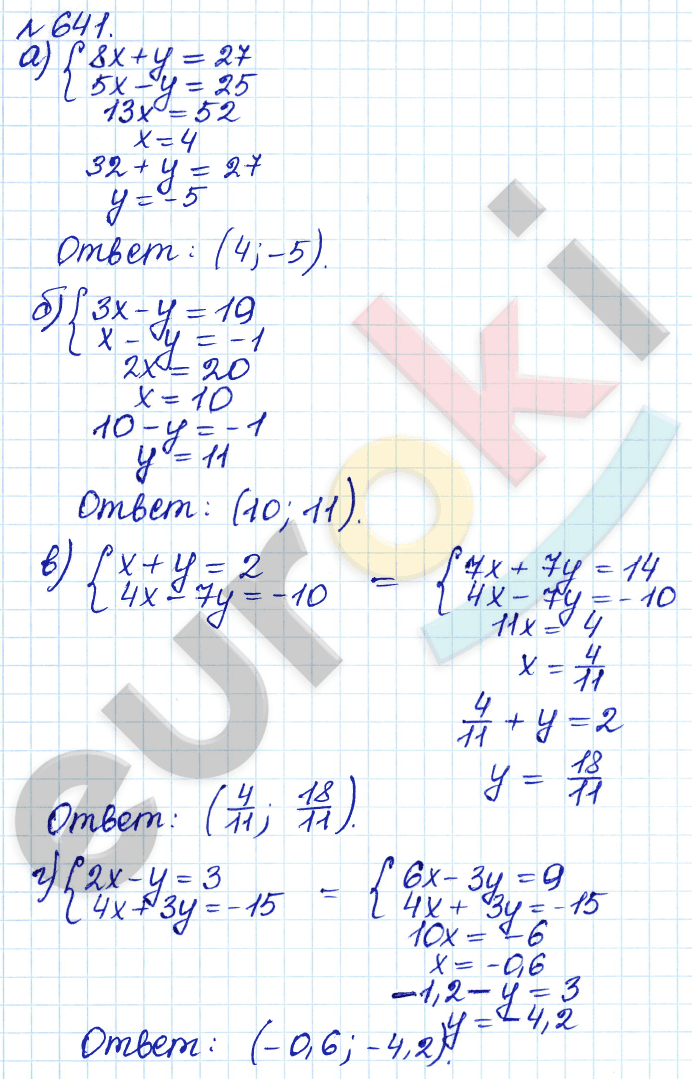 № 641.
а) { 8x + y = 27
5x - y = 25
13x = 52
x = 4
32 + y = 27
y = -5
Ответ: (4; -5).
б) { 3x - y = 19
x - y = -1
2x = 20
x = 10
10 - y = -1
y = 11
Ответ: (10; 11).
в) { x + y = 2 = { 7x + 7y = 14
4x - 7y = -10 4x - 7y = -10
11x = 4
x = 4/11
4/11 + y = 2
y = 18/11
Ответ: (4/11; 18/11).
г) { 2x - y = 3 = { 6x - 3y = 9
4x + 3y = -15 4x + 3y = -15
10x = -6
x = -0,6
-1,2 - y = 3
y = -4,2
Ответ: (-0,6; -4,2).
euroki